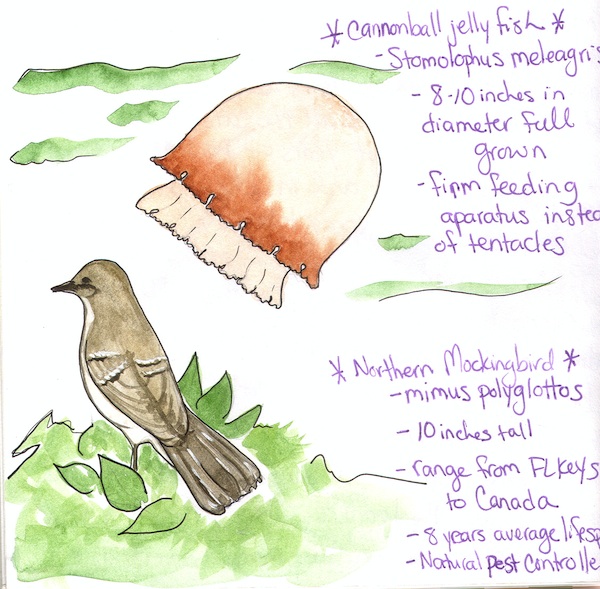 * Cannonball jelly fish *
- Stomolophus meleagris
- 8-10 inches in
diameter full
grown
- firm feeding
aparatus instea
of tentacles
* Northern Mockingbird *
- mimus polyglottos
- 10 inches tall
- range from FL Keys
to Canada
- 8 years average lifesp
- Natural pest controlle